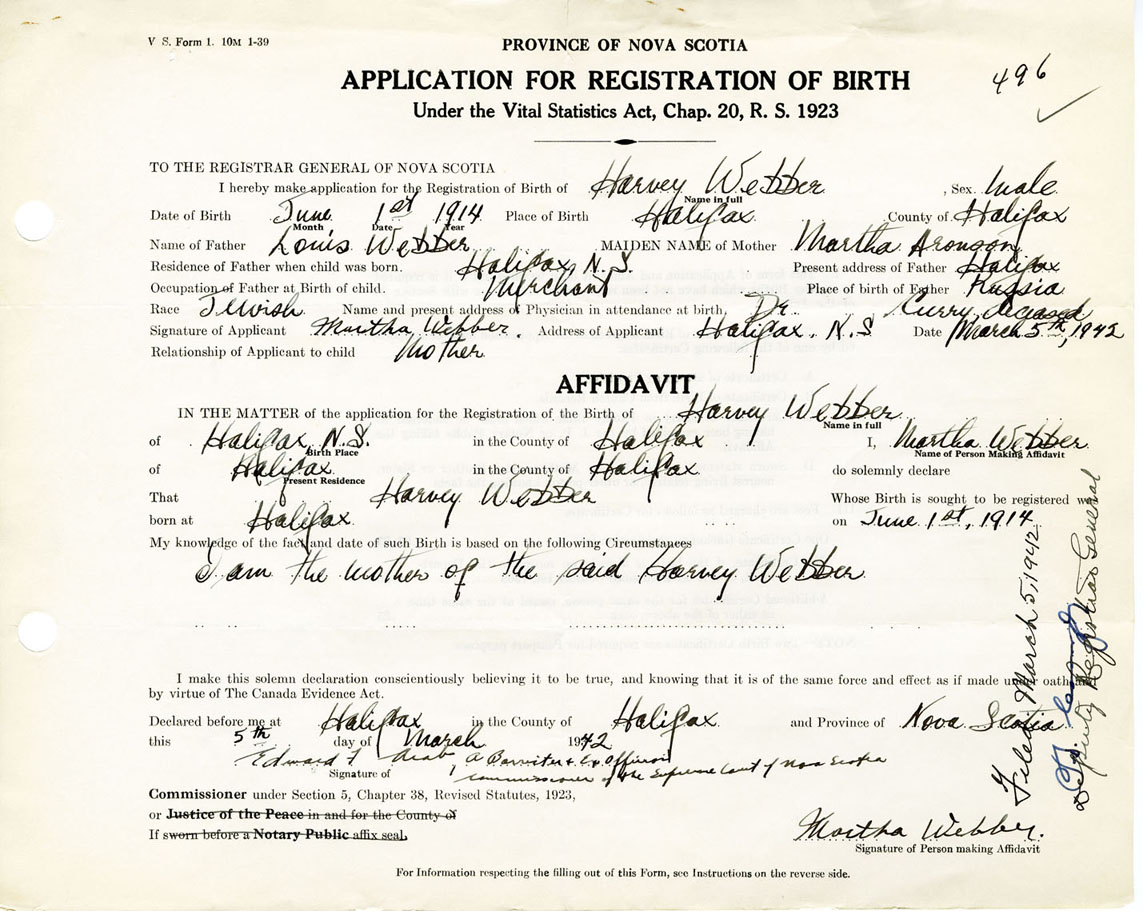 V S. Form 1. 10M 1-39
PROVINCE OF NOVA SCOTIA
APPLICATION FOR REGISTRATION OF BIRTH
496
Under the Vital Statistics Act, Chap. 20, R. S. 1923
TO THE REGISTRAR GENERAL OF NOVA SCOTIA
I hereby make application for the Registration of Birth of Harvey Webber, Sex. Male
Name in full
Date of Birth June 1st 1914 Place of Birth Halifax County of Halifax
Month Date Year
Name of Father Louis Webber MAIDEN NAME of Mother Martha Aronson
Residence of Father when child was born. Halifax, N.S. Present address of Father Halifax
Occupation of Father at Birth of child. Merchant Place of birth of Father Russia
Race Jewish Name and present address of Physician in attendance at birth, Dr. Curry, deceased
Signature of Applicant Martha Webber. Address of Applicant Halifax, N.S Date March 5th, 1942
Relationship of Applicant to child Mother
AFFIDAVIT
IN THE MATTER of the application for the Registration of the Birth of Harvey Webber
Name in full
of Halifax, N.S. in the County of Halifax I, Martha Webber
Birth Place Name of Person Making Affidavit
of Halifax in the County of Halifax do solemnly declare
Present Residence
That Harvey Webber Whose Birth is sought to be registered was
born at Halifax on June 1st, 1914
My knowledge of the fact and date of such Birth is based on the following Circumstances
I am the mother of the said Harvey Webber
I make this solemn declaration conscientiously believing it to be true, and knowing that it is of the same force and effect as if made under oath and
by virtue of The Canada Evidence Act.
Declared before me at Halifax in the County of Halifax and Province of Nova Scotia
this 5th day of March 1942
Edward F Arab, A Barrister &
Signature of Commissioner of the Supreme Court of Nova Scotia
Commissioner under Section 5, Chapter 38, Revised Statutes, 1923,
or Justice of the Peace in and for the County of
If sworn before a Notary Public affix seal.
Martha Webber.
Signature of Person making Affidavit
For Information respecting the filling out of this Form, see Instructions on the reverse side.
Filed March 5, 1942
Deputy Registrar General